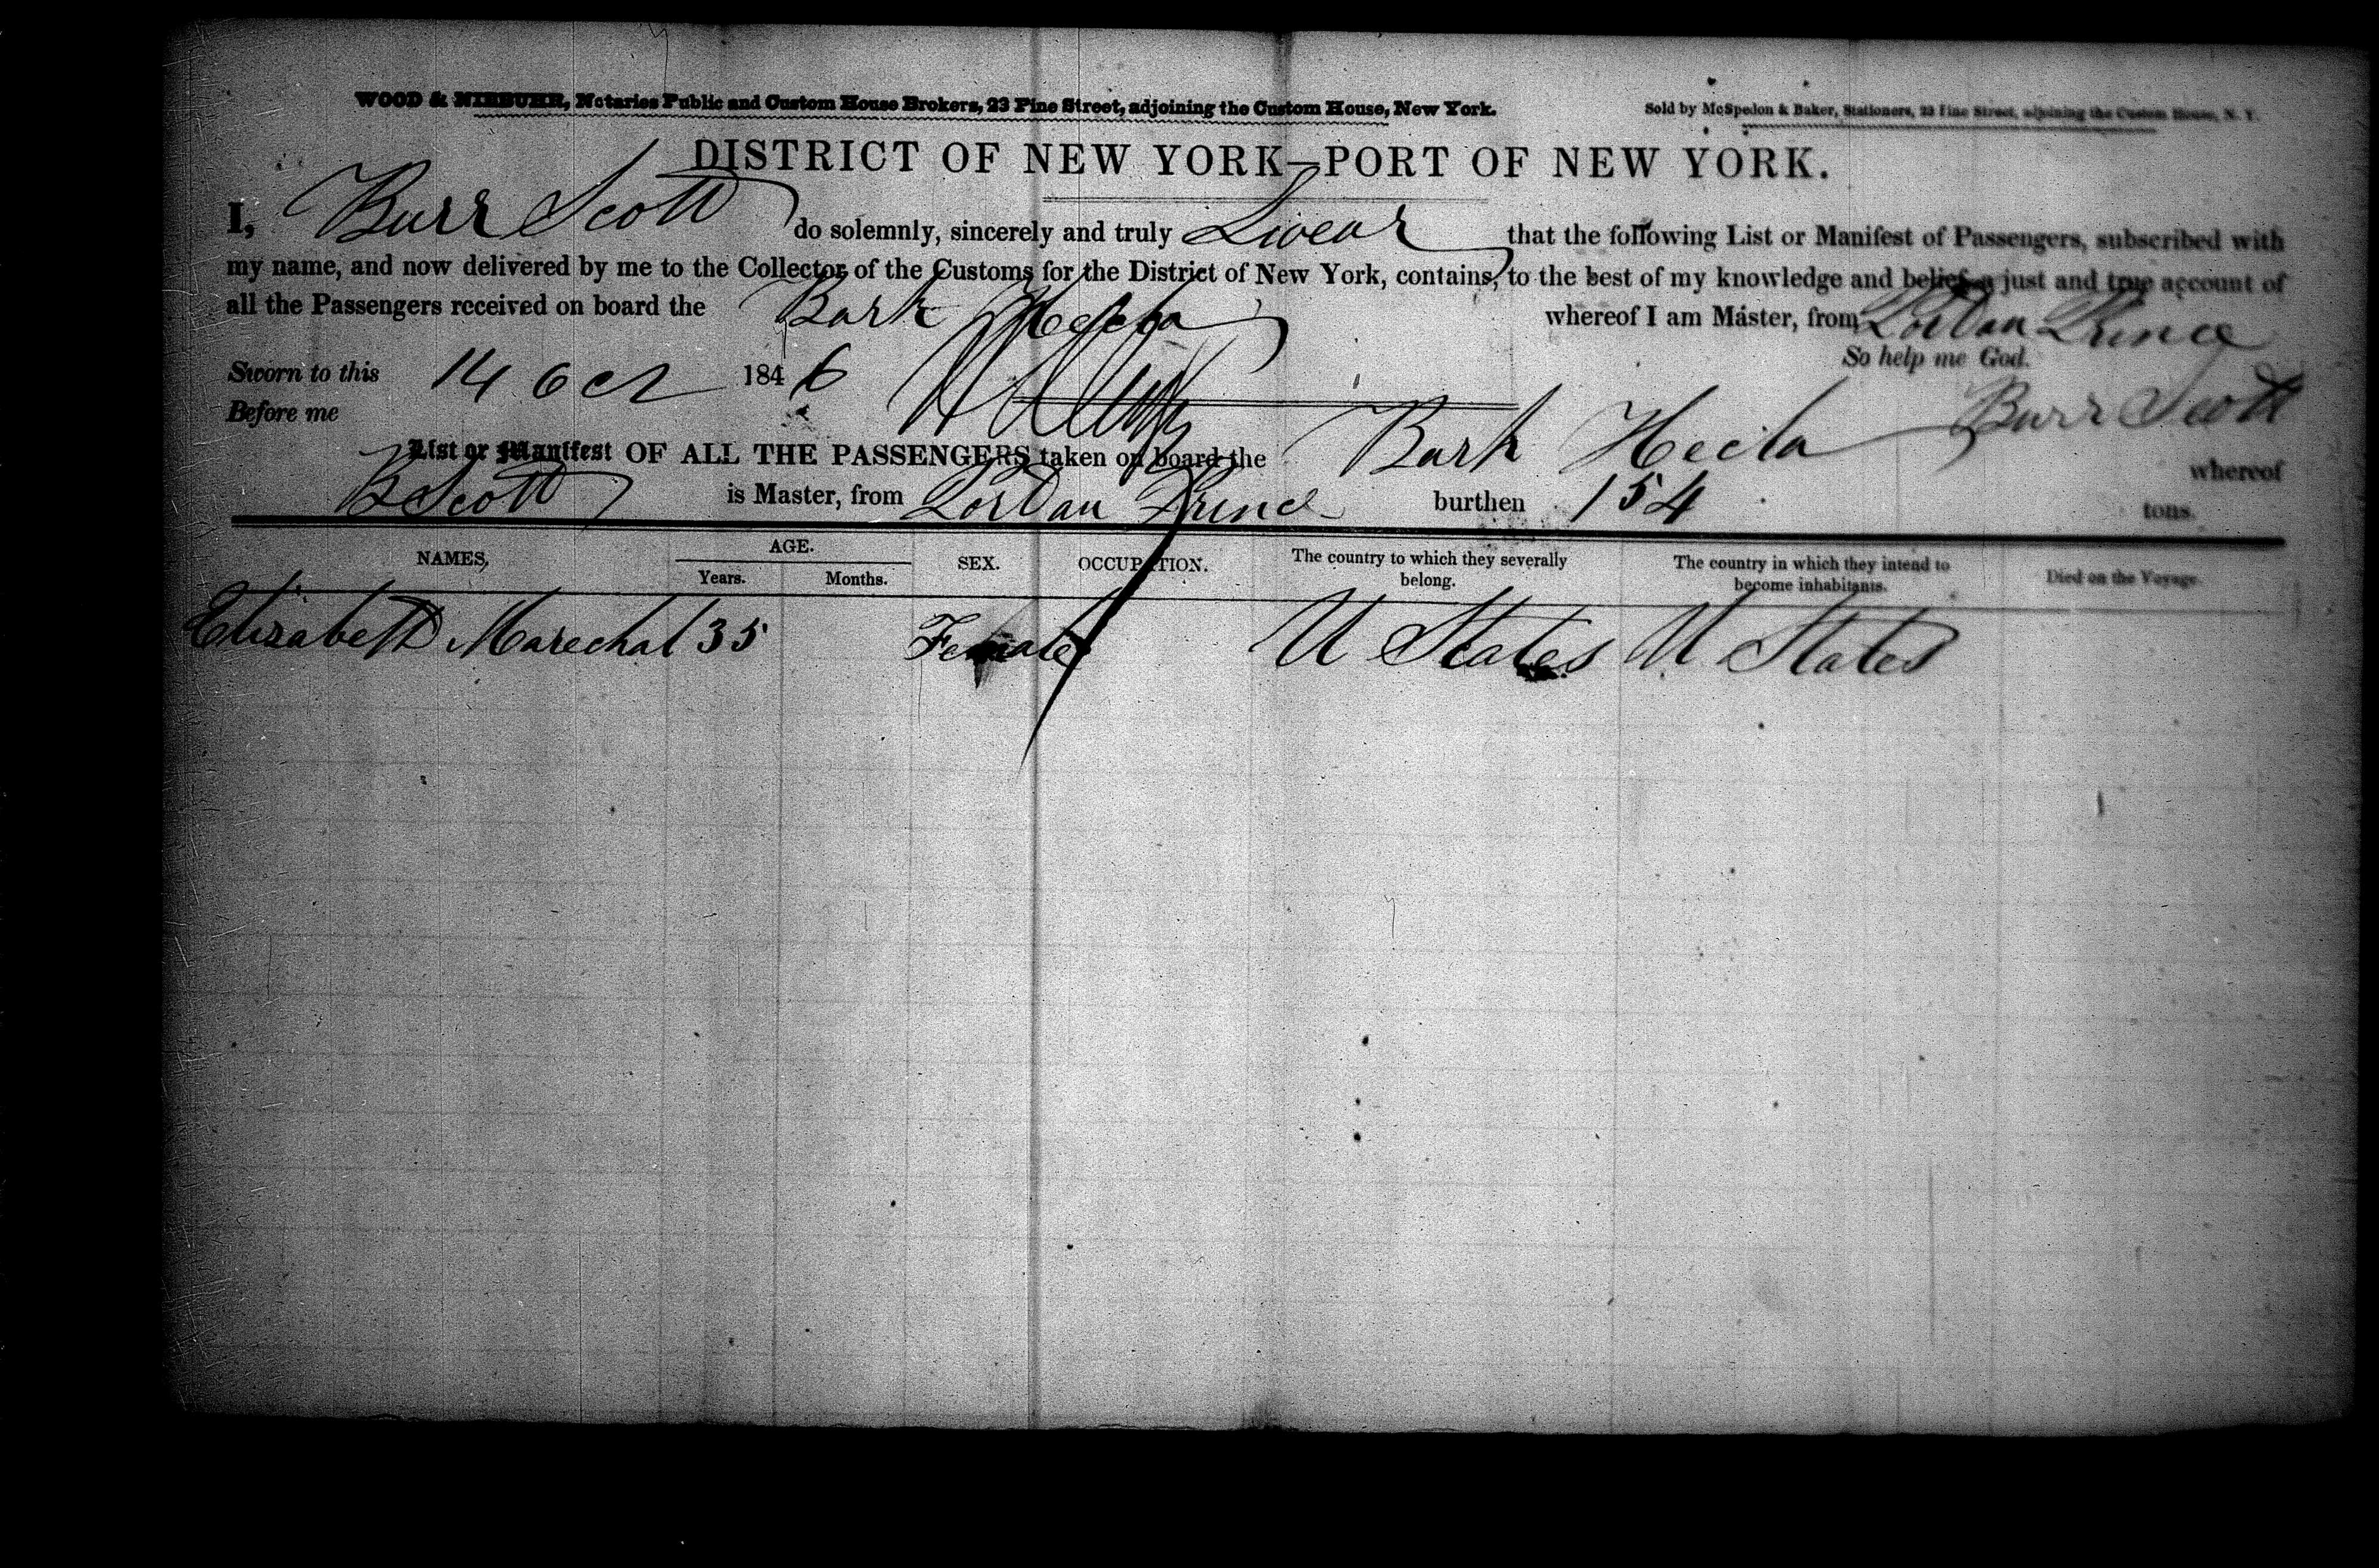 WOOD & NIEBUHR, Notaries Public and Custom House Brokers, 23 Pine Street, adjoining the Custom House, New York.
Sold by McSpedon & Baker, Stationers, 23 Pine Street, adjoining the Custom House, N. Y.
DISTRICT OF NEW YORK—PORT OF NEW YORK.
I, Burr Scott do solemnly, sincerely and truly Swear that the following List or Manifest of Passengers, subscribed with
my name, and now delivered by me to the Collector of the Customs for the District of New York, contains, to the best of my knowledge and belief, a just and true account of
all the Passengers received on board the Bark Hecla whereof I am Master, from Port au Prince
So help me God.
Sworn to this 14 Oct 1846
Before me Burr Scott
List or Manifest OF ALL THE PASSENGERS taken on board the Bark Hecla whereof
B Scott is Master, from Port au Prince burthen 154 tons.
NAMES, AGE. Years. Months. SEX. OCCUPATION. The country to which they severally belong. The country in which they intend to become inhabitants. Died on the Voyage.
Elizabeth Marechal 35 Female U States U States